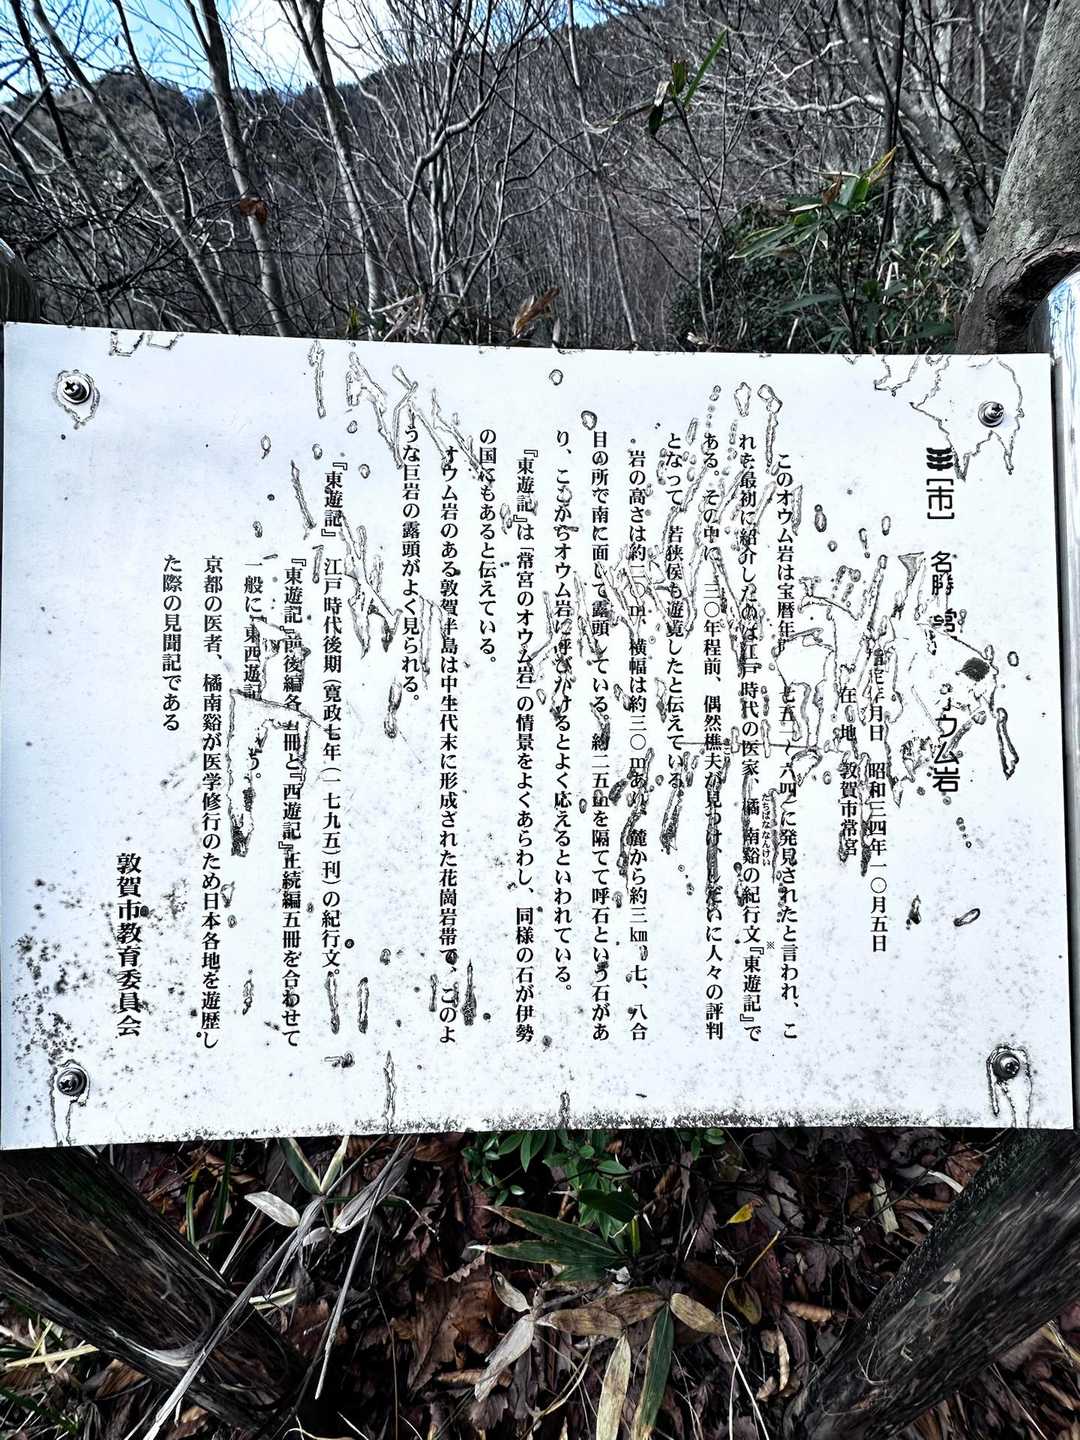 [市] 名勝 常 オウム岩
指定年月日 昭和三四年一〇月五日
在 地 敦賀市常宮
このオウム岩は宝暦年 七五一～六四に発見されたと言われ、こ
れを最初に紹介したのは江戸時代の医家、橘南谿の紀行文『東遊記』で
たちばななんけい
※
ある。その中に、三〇年程前、偶然樵夫が見つけ、しだいに人々の評判
となって 若狭侯も遊覧したと伝えている
岩の高さは約二〇m、横幅は約三〇mあり、麓から約三km、七、八合
目の所で南に面して露頭している。約二五mを隔てて呼石という石があ
り、ここからオウム岩に呼びかけるとよく応えるといわれている。
『東遊記』は「常宮のオウム岩」の情景をよくあらわし、同様の石が伊勢
の国にもあると伝えている。
オウム岩のある敦賀半島は中生代末に形成された花崗岩帯で、このよ
うな巨岩の露頭がよく見られる。
『東遊記』 江戸時代後期(寛政七年(一七九五)刊)の紀行文。
『東遊記』前後編各 冊と『西遊記』正続編五冊を合わせて
一般に『東西遊記 う。
京都の医者、橘南谿が医学修行のため日本各地を遊歴し
た際の見聞記である
敦賀市教育委員会